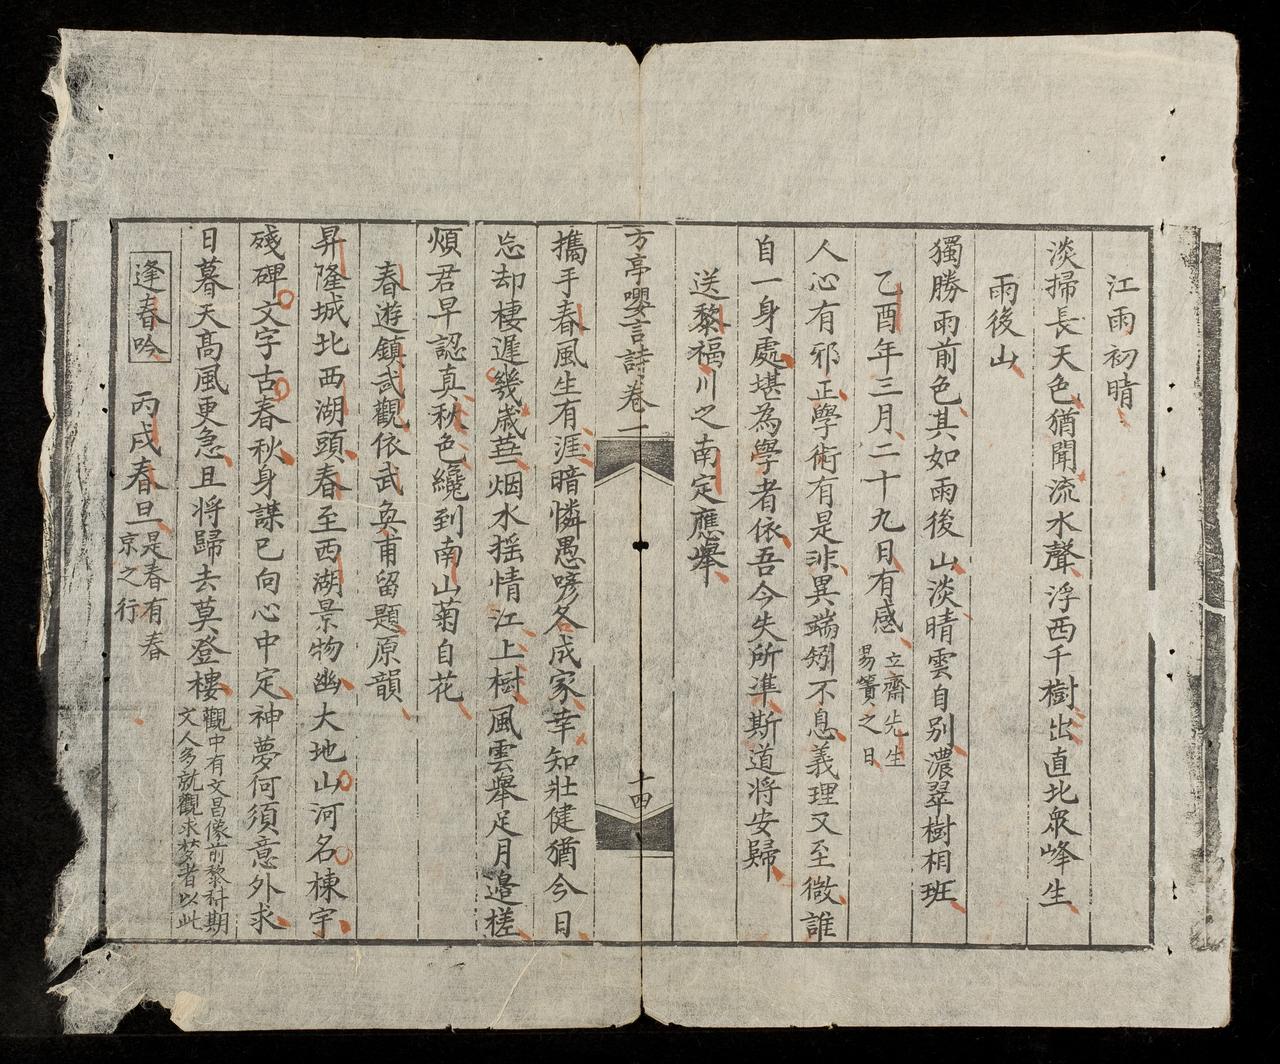 江雨初晴
淡掃長天色猶聞流水聲浮西千樹出直北衆峰生
雨後山
獨勝雨前色其如雨後山淡晴雲自別濃翠樹相班
乙酉年三月二十九日有感立齋先生
易簀之日
人心有邪正學術有是非異端矧不息義理又至微誰
自一身處堪為學者依吾今失所準斯道將安歸
送黎福川之南定應舉
方亭嚶言詩卷一
十四
攜手春風生有涯暗憐愚嗲各成家幸知壯健猶今日
忘却棲遲幾歲華烟水摇情江上樹風雲舉足月邊槎
煩君早認真秋色纔到南山菊自花
春遊鎮武觀依武奐甫留題原韻
昇隆城北西湖頭春至西湖景物幽大地山河名棟宇
殘碑文字古春秋身謀已向心中定神夢何須意外求
日暮天高風更急且將歸去莫登樓觀中有文昌像前黎科期
文人多就觀求梦者以此
逢春吟
丙戌春旦是春有春
京之行